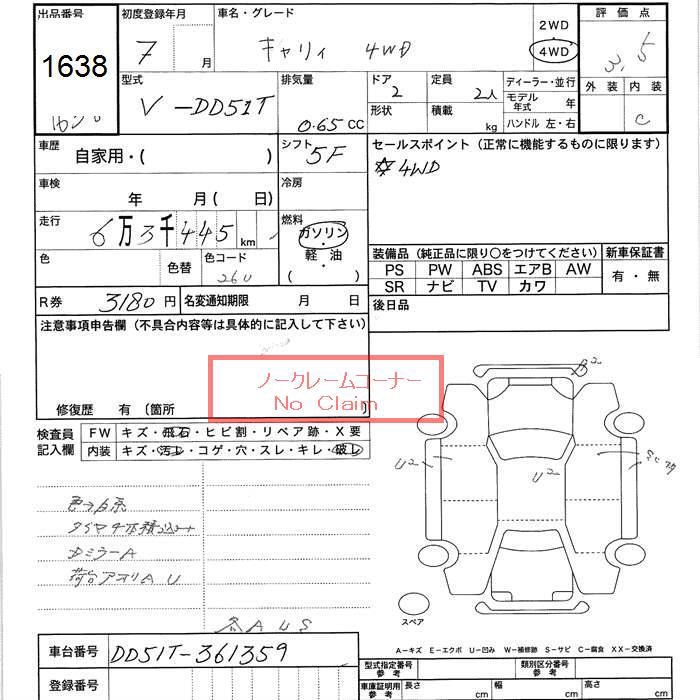 出品番号 初度登録年月 車名・グレード 2WD 評価点
1638 7 月 キャリィ 4WD 4WD 3.5
型式 排気量 ドア 定員 ディーラー・並行 外装 内装
V-DD51T 0.65 CC 2 2人 モデル年式 年 C
形状 積載 kg ハンドル 左・右
車歴 自家用・( ) シフト 5F セールスポイント (正常に機能するものに限ります)
☆4WD
車検 年 月 ( 日) 冷房
走行 6万3千445 km 燃料 ガソリン・軽油・( )
色 色替 色コード 26U
装備品 (純正品に限り○をつけてください) 新車保証書
PS PW ABS エアB AW 有・無
SR ナビ TV カワ
R券 3180円 名変通知期限 月 日 後日品
注意事項申告欄 (不具合内容等は具体的に記入して下さい)
ノークレームコーナー
No Claim
修復歴 有 (箇所 )
検査員記入欄 FW キズ・飛石・ヒビ割・リペア跡・X要
内装 キズ・汚レ・コゲ・穴・スレ・キレ・破レ
B2
U2 U2
ミラーA
荷台アオリA U
A U S
スペア
A-キズ E-エクボ U-凹み W-補修跡 S-サビ C-腐食 XX-交換済
車台番号 DD51T-361359
型式指定番号 参考 類別区分番号 参考
登録番号
車庫証明用 参考 長さ cm 幅 cm 高さ cm